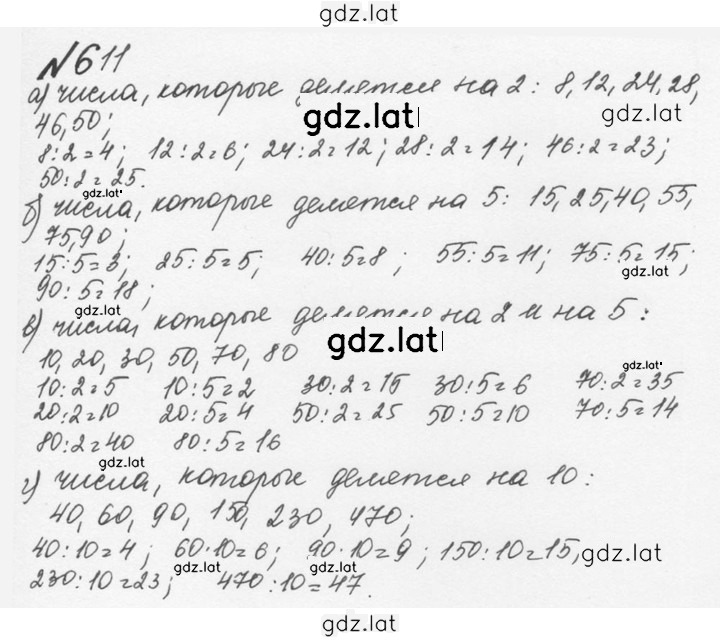 gdz.lat
№611
а) числа, которые делятся на 2: 8, 12, 24, 28,
gdz.lat
gdz.lat
46, 50;
8:2=4; 12:2=6; 24:2=12; 28:2=14; 46:2=23;
50:2=25.
gdz.lat
б) числа, которые делятся на 5: 15, 25, 40, 55,
75, 90;
15:5=3; 25:5=5; 40:5=8; 55:5=11; 75:5=15;
gdz.lat
90:5=18;
в) числа, которые делятся на 2 и на 5:
gdz.lat
10, 20, 30, 50, 70, 80
gdz.lat
10:2=5 10:5=2 30:2=15 30:5=6 70:2=35
20:2=10 20:5=4 50:2=25 50:5=10 70:5=14
80:2=40 80:5=16
gdz.lat
г) числа, которые делятся на 10:
40, 60, 90, 150, 230, 470;
40:10=4; 60:10=6; 90:10=9; 150:10=15,
gdz.lat
gdz.lat
gdz.lat
230:10=23; 470:10=47.
gdz.lat